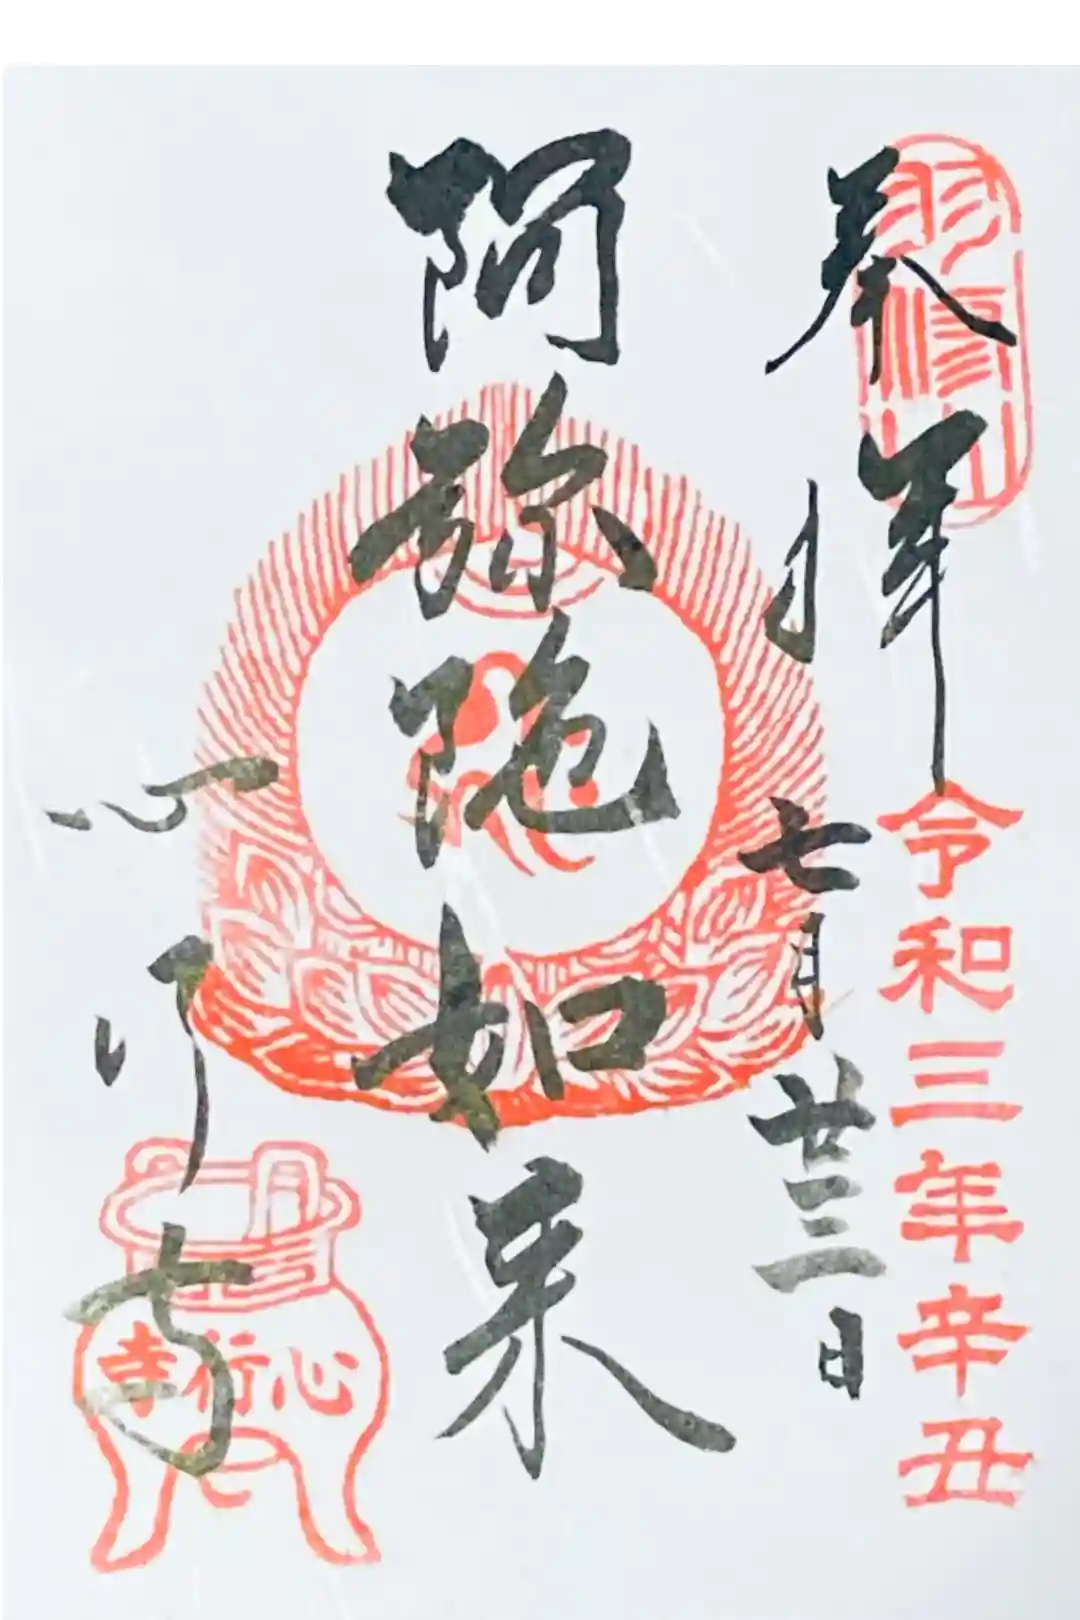 奉拝
令和三年辛丑
七月廿三日
阿弥陀如来
心行寺
心行寺